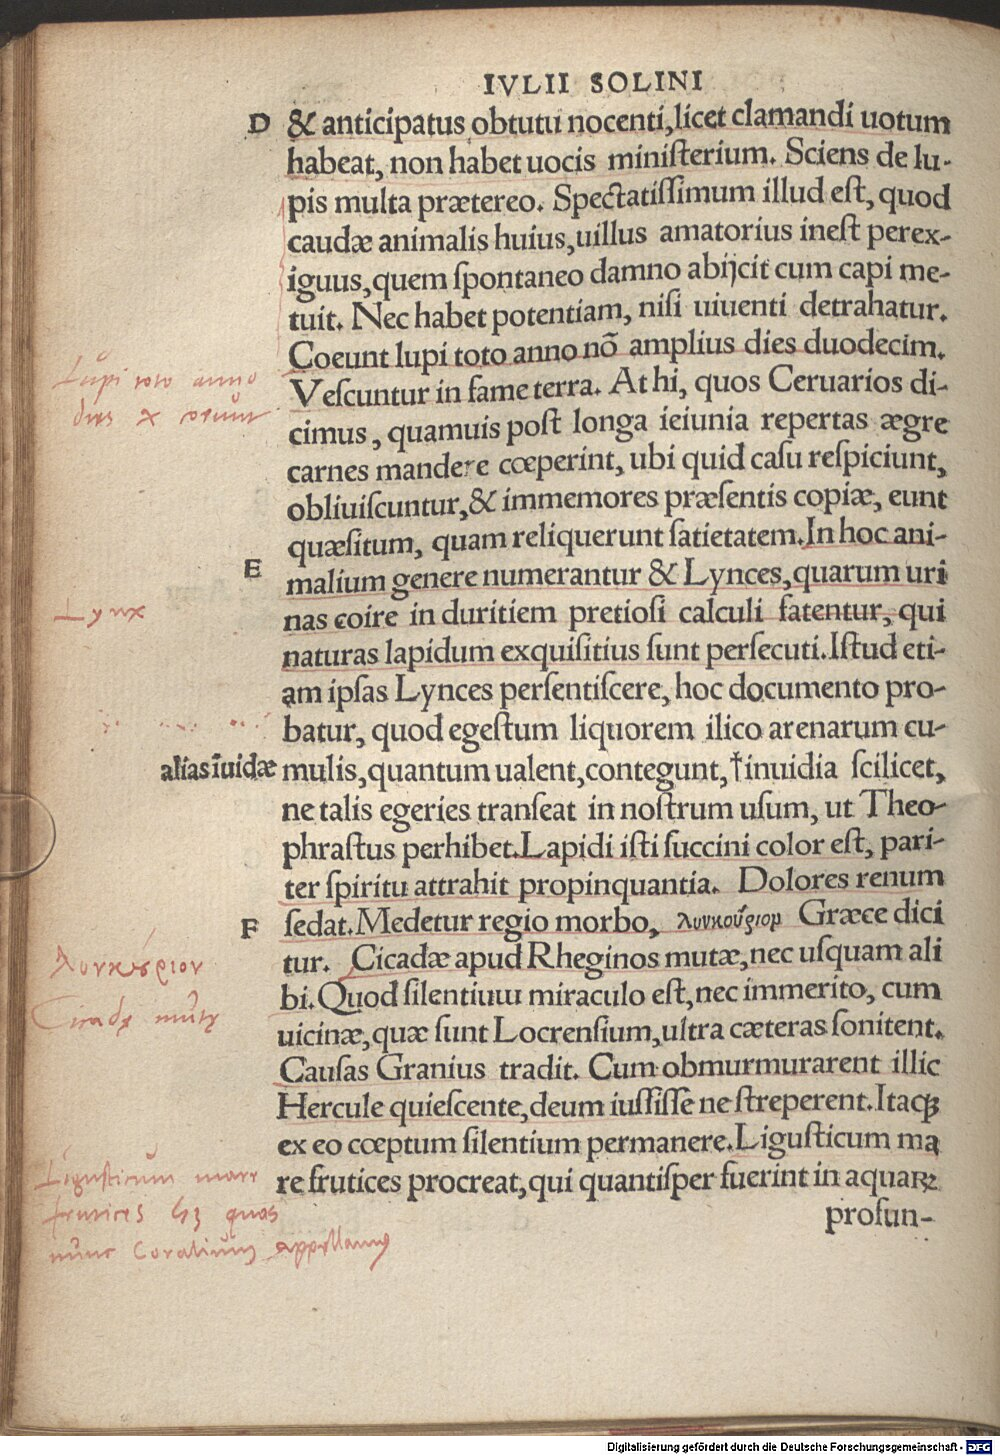 IVLII SOLINI
D & anticipatus obtutu nocenti, licet clamandi uotum
habeat, non habet uocis ministerium. Sciens de lu-
pis multa prætereo. Spectatissimum illud est, quod
caudæ animalis huius, uillus amatorius inest perex-
iguus, quem spontaneo damno abijcit cum capi me-
tuit. Nec habet potentiam, nisi uiuenti detrahatur.
Coeunt lupi toto anno nō amplius dies duodecim.
Lupi toto anno
dies x coeunt
Vescuntur in fame terra. At hi, quos Ceruarios di-
cimus, quamuis post longa ieiunia repertas ægre
carnes mandere cœperint, ubi quid casu respiciunt,
obliuiscuntur, & immemores præsentis copiæ, eunt
quæsitum, quam reliquerunt satietatem. In hoc ani-
E malium genere numerantur & Lynces, quarum uri
Lynx
nas coire in duritiem pretiosi calculi fatentur, qui
naturas lapidum exquisitius sunt persecuti. Istud eti-
am ipsas Lynces persentiscere, hoc documento pro-
batur, quod egestum liquorem ilico arenarum cu-
alias īuidæ mulis, quantum ualent, contegunt, †inuidia scilicet,
ne talis egeries transeat in nostrum usum, ut Theo-
phrastus perhibet. Lapidi isti succini color est, pari-
ter spiritu attrahit propinquantia. Dolores renum
F sedat. Medetur regio morbo, λυνκούριομ Græce dici
λυνκύριον
tur. Cicadæ apud Rheginos mutæ, nec usquam ali
bi. Quod silentium miraculo est, nec immerito, cum
Cicadę mutę
uicinæ, quæ sunt Locrensium, ultra cæteras sonitent.
Causas Granius tradit. Cum obmurmurarent illic
Hercule quiescente, deum iussisse ne streperent. Itaqꝫ
ex eo cœptum silentium permanere. Ligusticum ma
re frutices procreat, qui quantisper fuerint in aquaꝝ
Ligusticum mare
frutices hꝫ quos
nunc Coralium appellamus
profun-
Digitalisierung gefördert durch die Deutsche Forschungsgemeinschaft - DFG